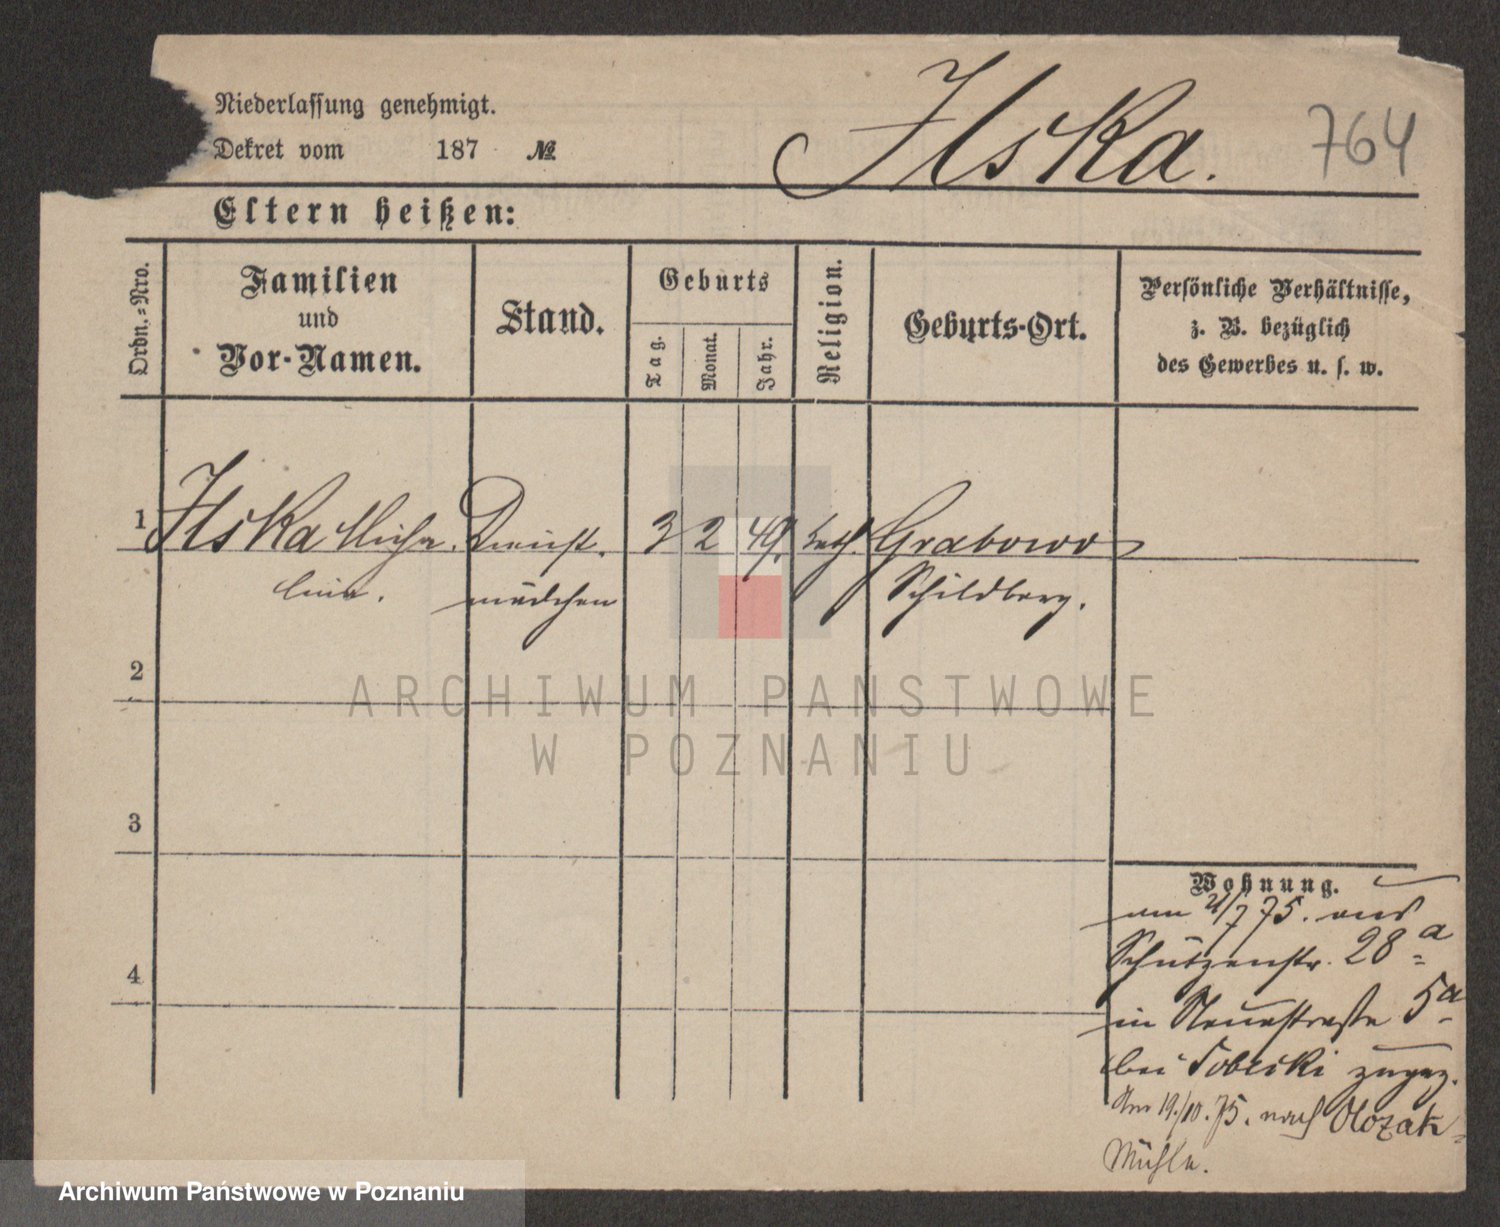 Niederlassung genehmigt.
Dekret vom 187 №
Ilska.
764
Eltern heißen:
Ordn.-Nro.
Familien
und
Vor-Namen.
Stand.
Geburts
Tag.
Monat.
Jahr.
Religion.
Geburts-Ort.
Persönliche Verhältnisse,
z. B. bezüglich
des Gewerbes u. s. w.
1 Ilska Micha Dienst- 3 2 49. kath. Grabowo
lina. mädchen Schildberg.
2
3
4
ARCHIWUM PAŃSTWOWE
W POZNANIU
Wohnung.
am 2/7 75. aus
Schützenstr. 28 a
in Neuestraße 5a
bei Sobeski zugez.
Am 19./10. 75. nach
Mühle.
Archiwum Państwowe w Poznaniu